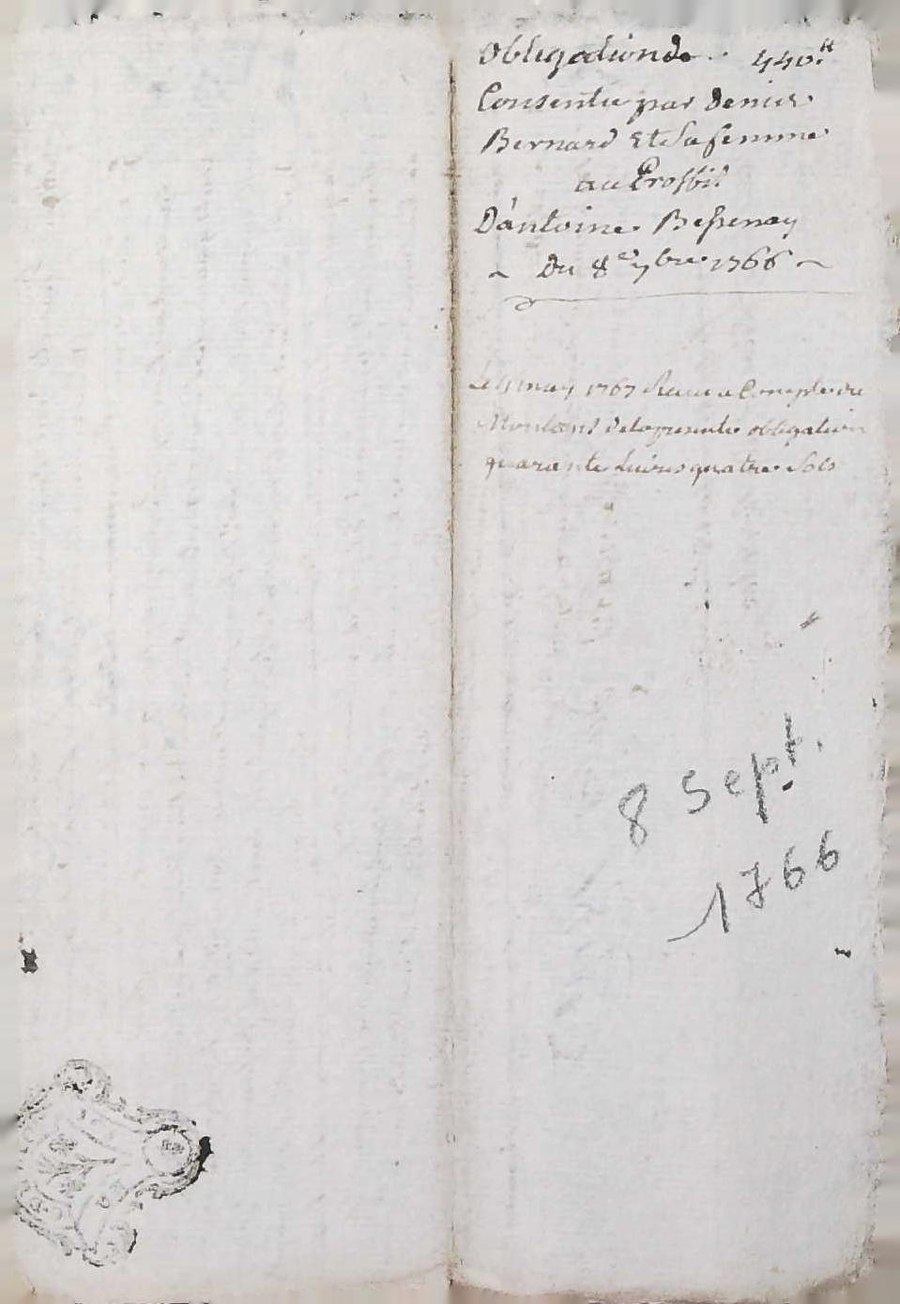 Obligation de 440ᵗᵗ
Consentie par denis
Bernard Et Sa femme
au Proffit
D'antoine Bessenay
~ Du 8ᵉ 7bre 1766 ~
Le 9 may 1767 Receu a Compte du
Montant de la presente obligation
quarante Livres quatre Sols
8 Sept.
1766